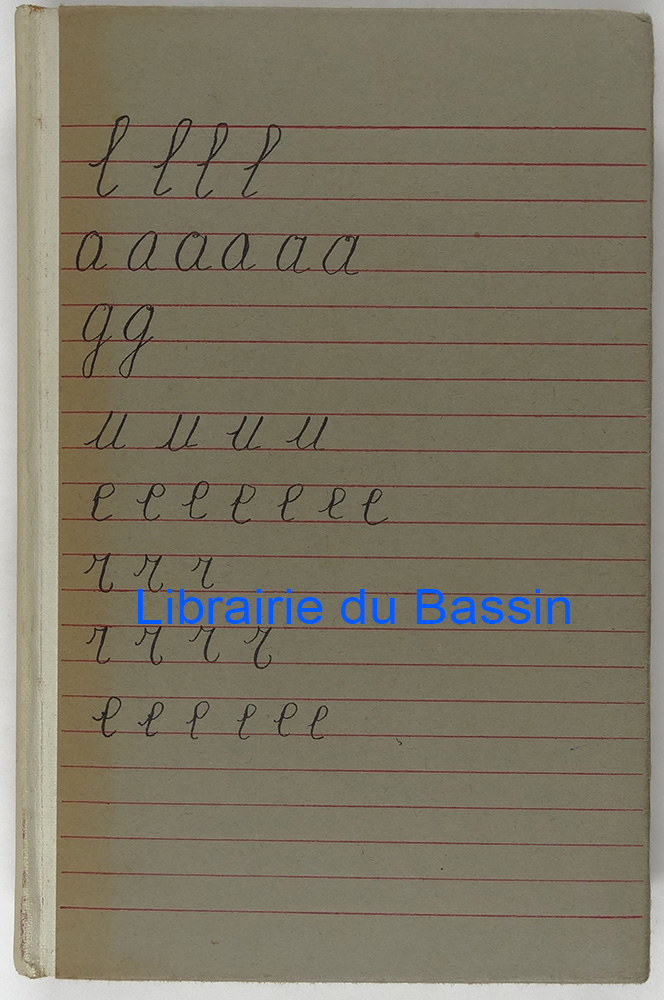 l l l l
a a a a a a
g g
u u u u
e e e e e e e
r r r
Librairie du Bassin
r r r r
e e e e e e